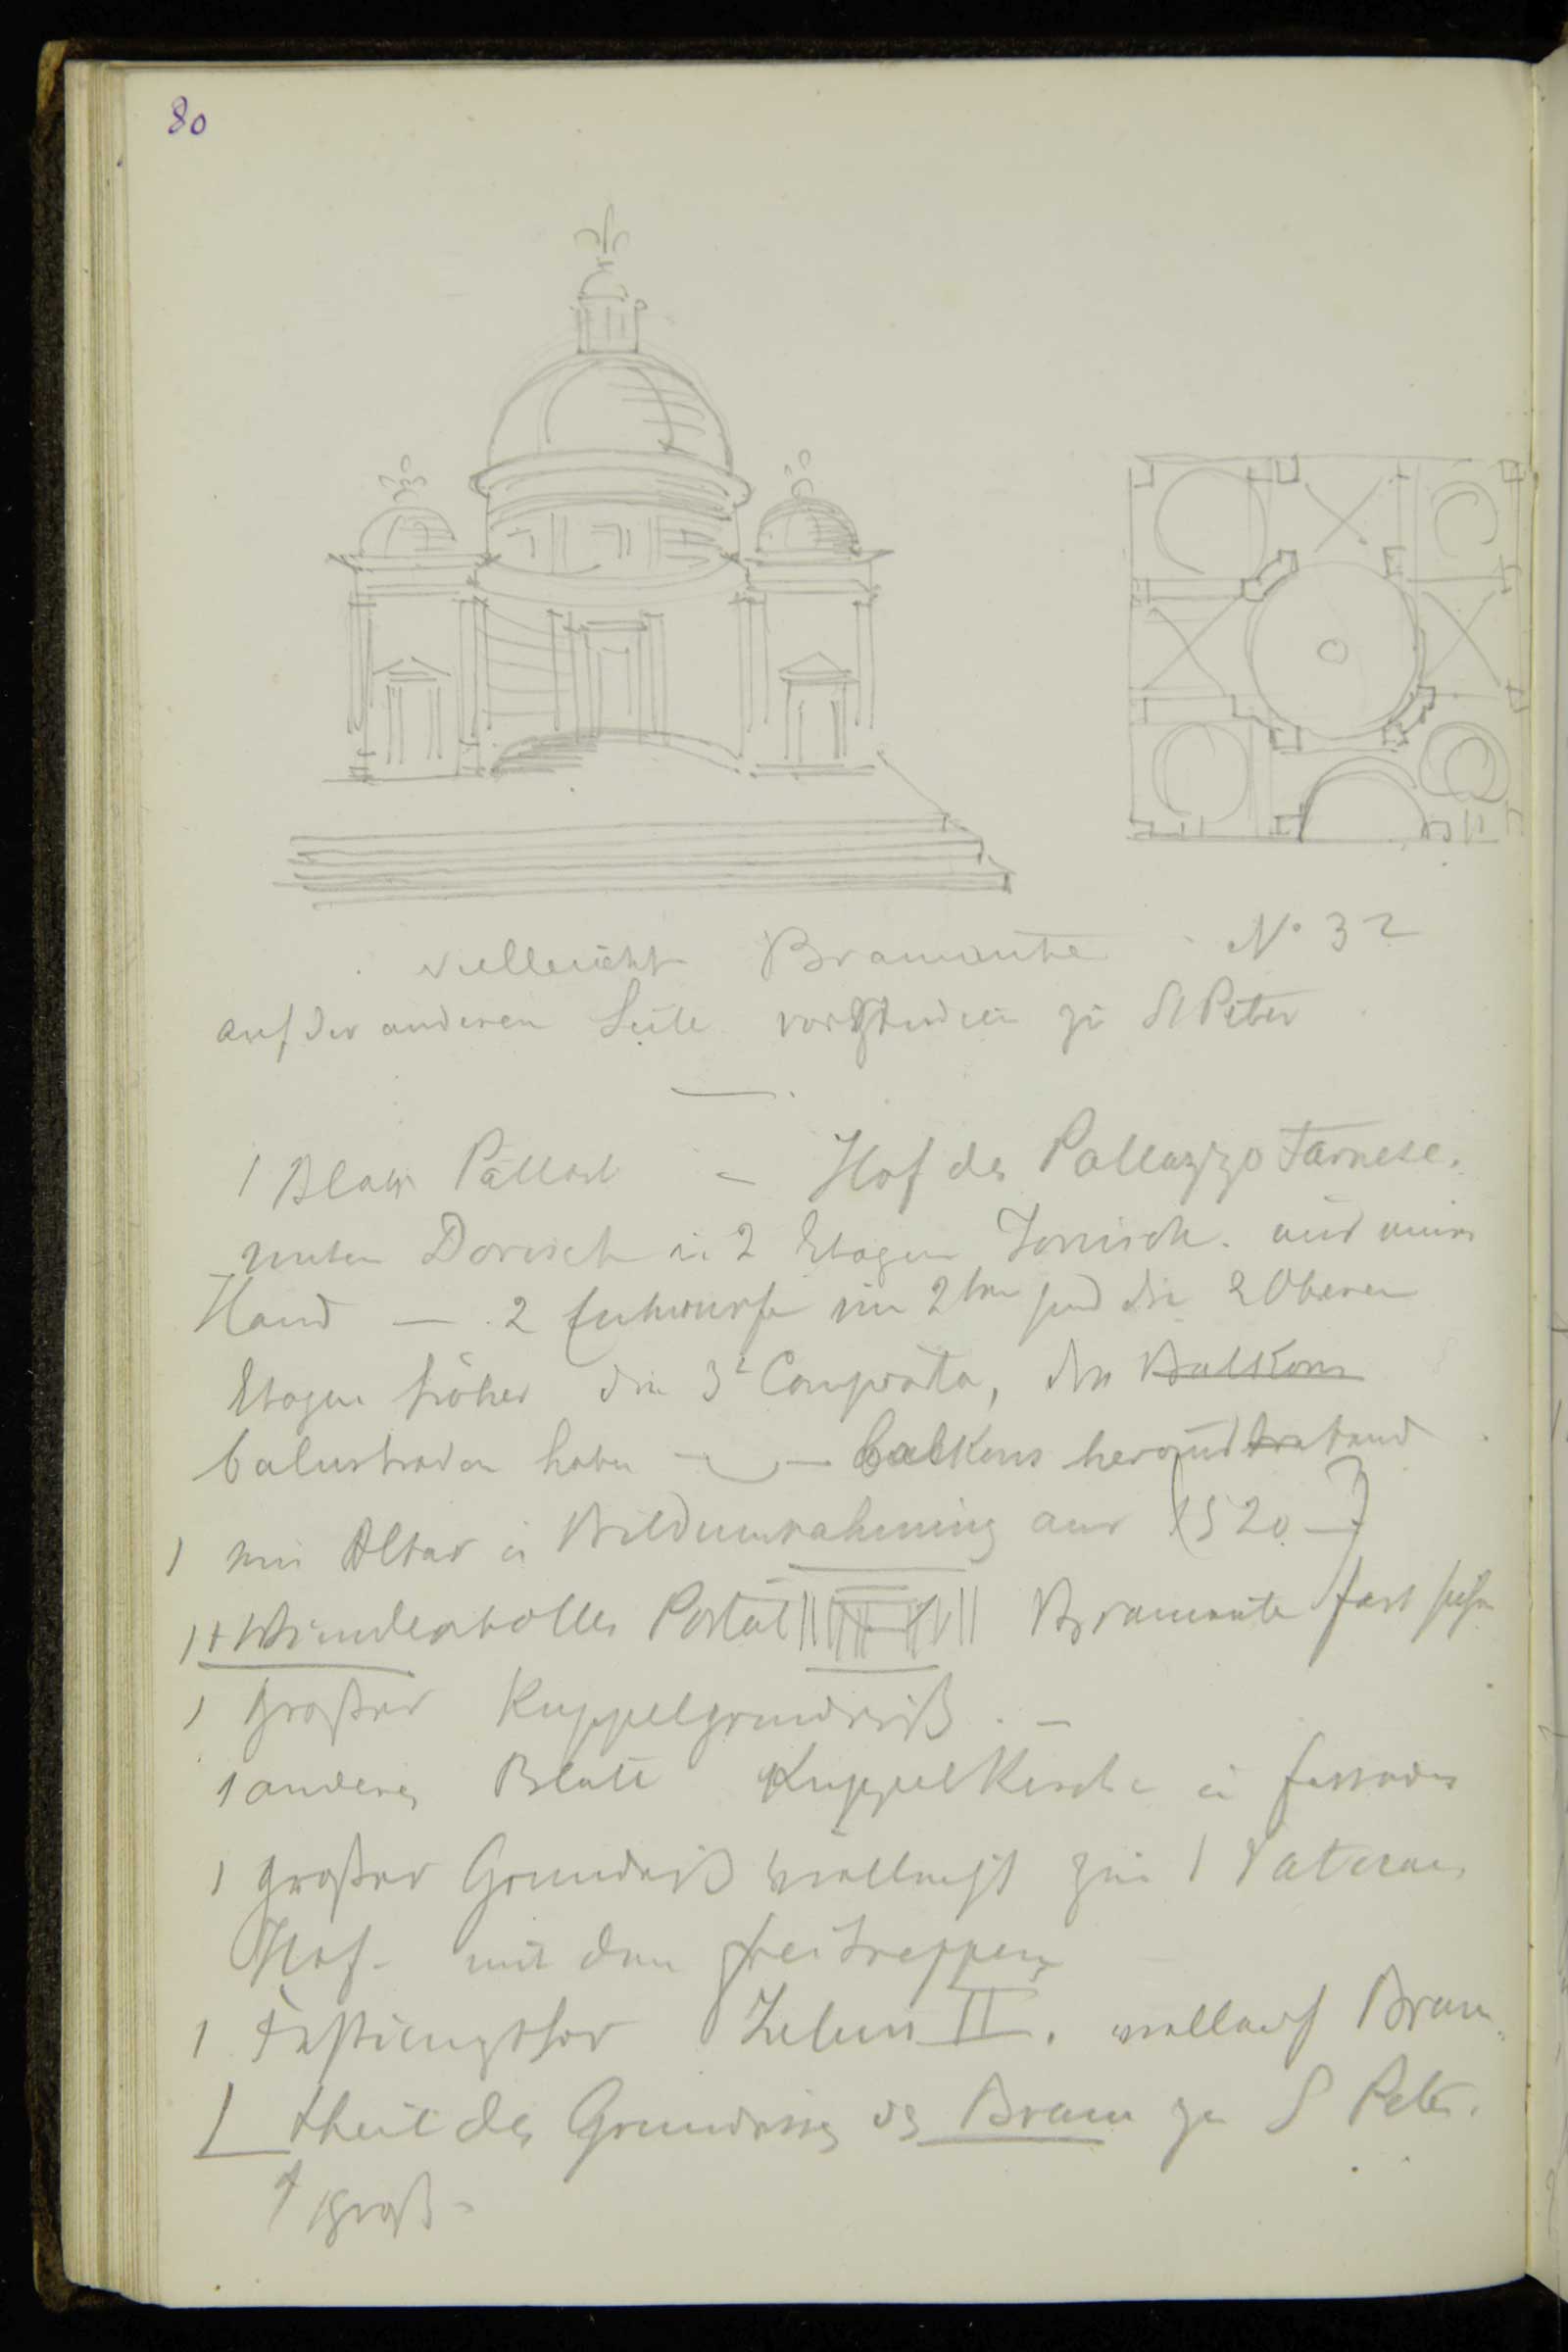 80
vielleicht Bramante N° 32
auf der anderen Seite vorstudien zu St Peter
1 Blatt Pallast – Hof des Pallazzo Farnese.
unten Dorisch u 2 Etagen Jonisch. und
Hand — 2 Entwurfe im 2ten sind die 2 Oberen
Etagen höher die 3t Composita, den Balkons
balustraden haben — — balkons
1 ein Altar u Bildumrahmung aus (1520 —)
1 + Wundervolles Portal Bramante fast sicher
1 großer Kuppelgrundriß . –
1 anderes Blatt Kuppelkirche u fassaden
1 großer Grundriß vielleicht zu 1
Hof – mit den freitreppen
1 Festungsthor Julius II. vielleicht Bram.
1 theil des Grundrisses des Bram zu S Peter.
groß –